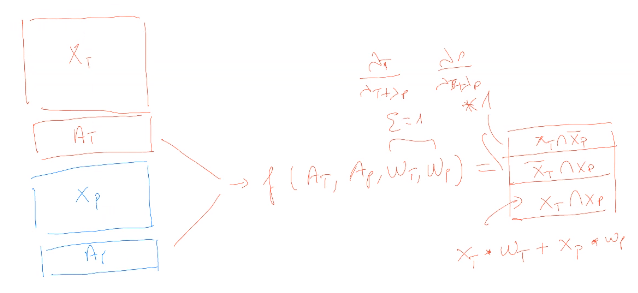 X_T
A_T
X_P
A_P
λ_T / λ_T+λ_P   λ_P / λ_T+λ_P
*1
Σ=1
→ f (A_T, A_P, W_T, W_P) =
X_T ∩ X̅_P
X̅_T ∩ X_P
X_T ∩ X_P
X_T * W_T + X_P * W_P